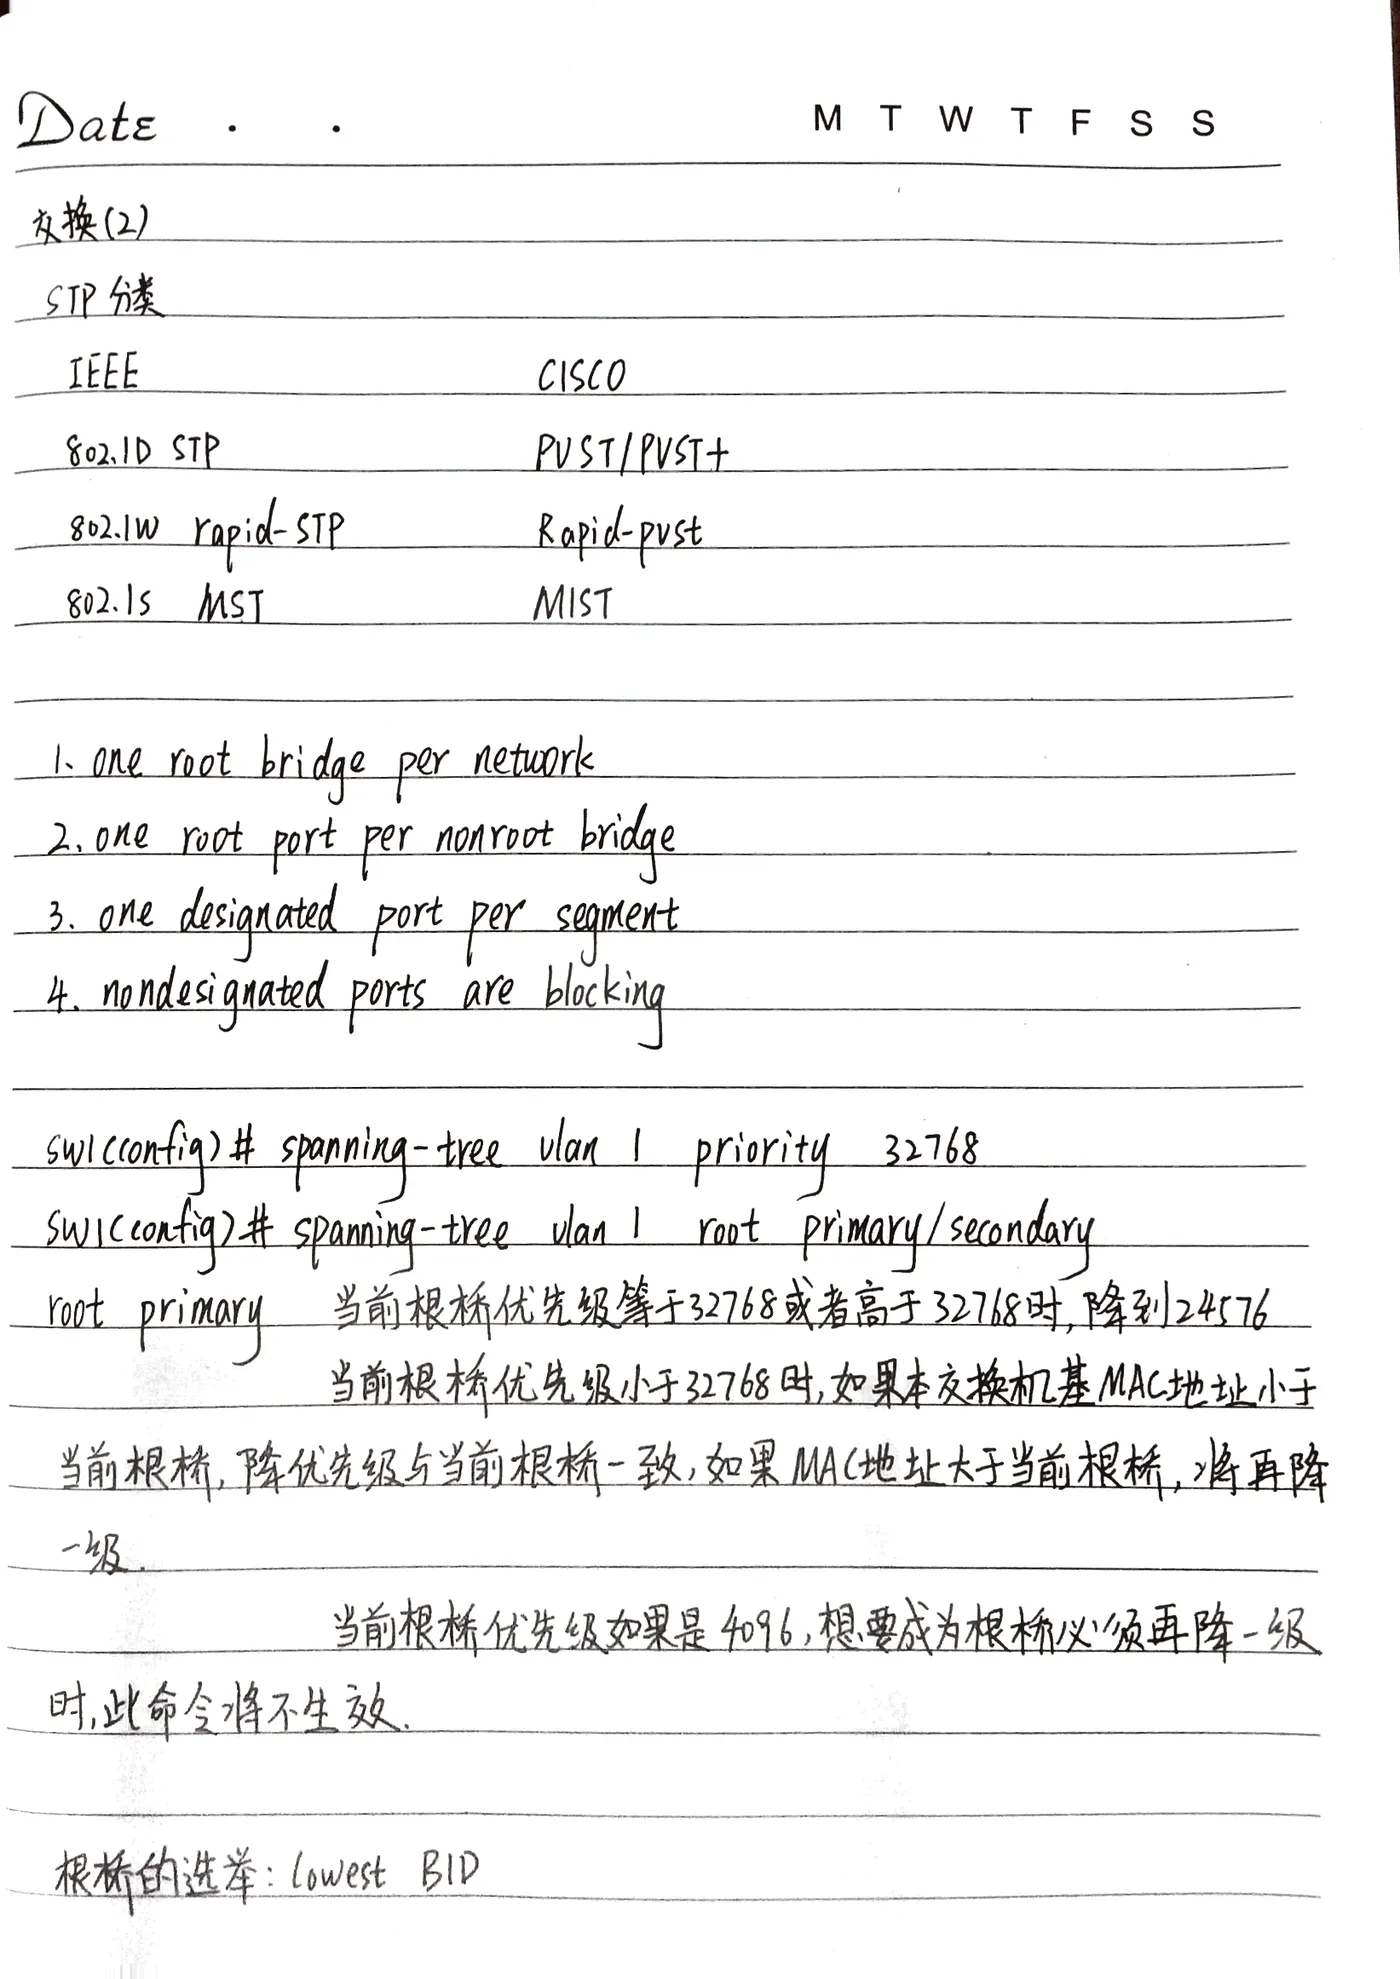 Date . . M T W T F S S
交换(2)
STP 分类
IEEE CISCO
802.1D STP PVST/PVST+
802.1W rapid-STP Rapid-pvst
802.1s MST MIST
1. one root bridge per network
2. one root port per nonroot bridge
3. one designated port per segment
4. nondesignated ports are blocking
SW1(config)# spanning-tree vlan 1 priority 32768
SW1(config)# spanning-tree vlan 1 root primary/secondary
root primary 当前根桥优先级等于32768或者高于32768时,降到24576
当前根桥优先级小于32768时,如果本交换机基MAC地址小于
当前根桥,降优先级与当前根桥一致,如果MAC地址大于当前根桥,将再降
一级.
当前根桥优先级如果是4096,想要成为根桥必须再降一级
时,此命令将不生效.
根桥的选举: lowest BID